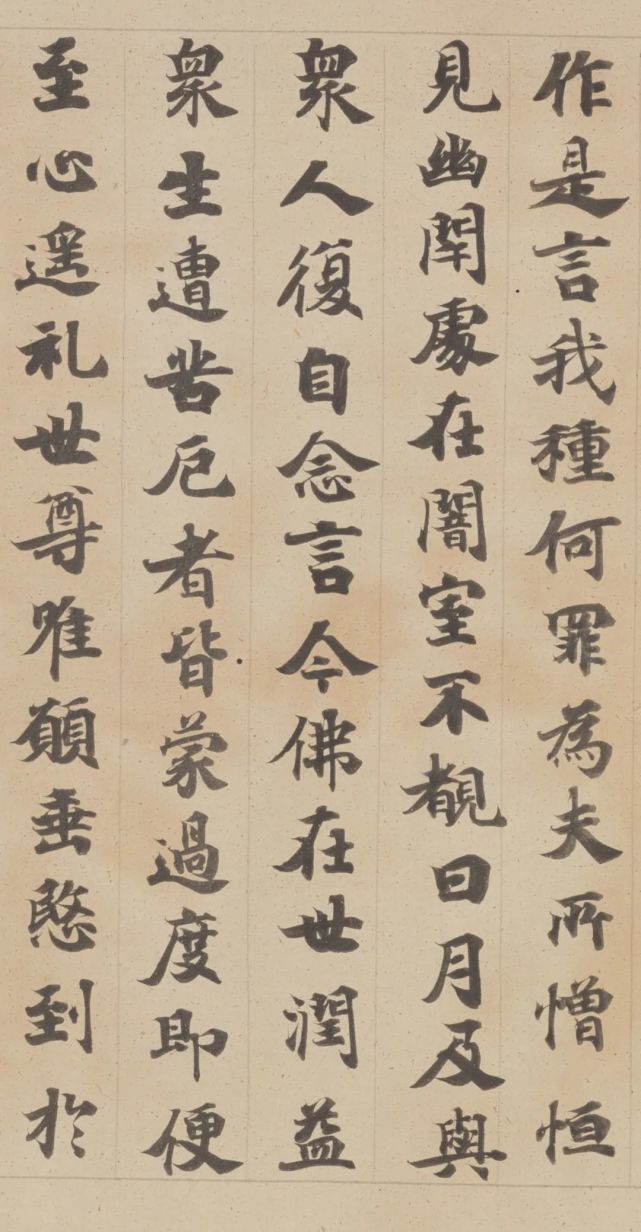 作是言我種何罪為夫所憎恒
見幽閇處在闇室不覩日月及與
衆人復自念言今佛在世潤益
衆生遭苦厄者皆蒙過度即便
至心遥礼世尊唯願垂愍到於